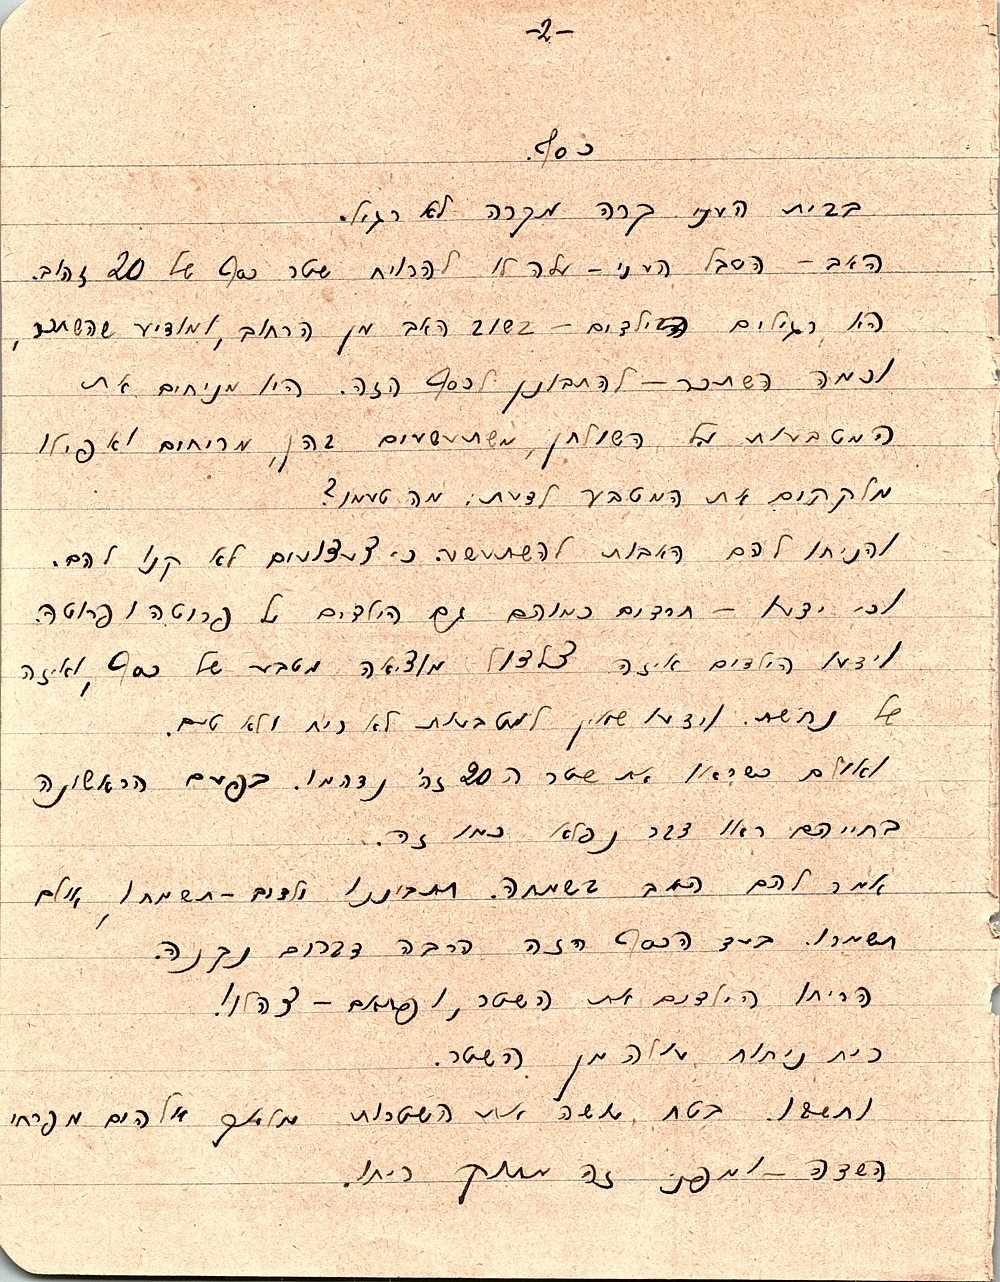 -2-
כסף.
בבית העני קרה מקרה לא רגיל.
האב - הסבל העני - עלה לו להרויח שטר כסף של 20 זהוב.
הא רגילים הילדים - בשוב האב מן הרחוב, ומודיע שהשתכר,
וכמה השתכר - להתבונן לכסף הזה. היו מניחים את
המטבעות על השולחן, משתעשעים בהן, מריחים ואפילו
מלקקים את המטבע לדעת: מה טעמו?
והניחו להם האבות להשתעשע. כי צעצועים לא קנו להם.
וכי ידעו - חרדים כמוהם גם הילדים על פרוטה ופרוטה.
וידעו הילדים איזה צלצול מוציאה מטבע של כסף, ואיזה
של נחשת. וידעו שאין למטבעות לא ריח ולא טעם.
ואולם כשראו את שטר ה 20 זה' נדהמו. בפעם הראשונה
בחייהם ראו דבר נפלא כמו זה.
אמר להם האב בשמחה. תתבוננו ילדים - תשמחו, אולם
תשמרו. בעד הכסף הזה הרבה דברים נקנה.
הריחו הילדים את השטר, ופתאם - צהלו!
ריח ניחוח עולה מן השטר.
וחשבו. בטח עושה את השטרות מלאך אלהים מפרחי
השדה - ומפני זה מתוק ריחו.